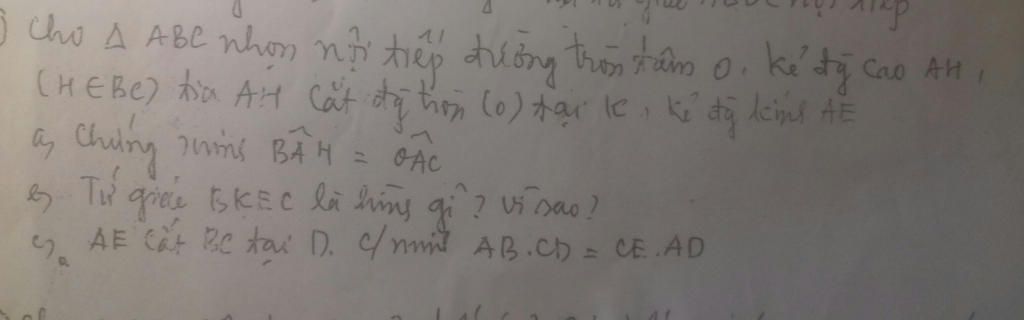 nội tiếp
Cho Δ ABC nhọn nội tiếp đường tròn tâm O. Kẻ đg cao AH,
(H∈BC) tia AH cắt đg tròn (O) tại K, kẻ đg kính AE
a, Chứng minh BÂH = OÂC
b, Tứ giác BKEC là hình gì? Vì sao?
c, AE cắt BC tại D. C/minh AB.CD = CE.AD